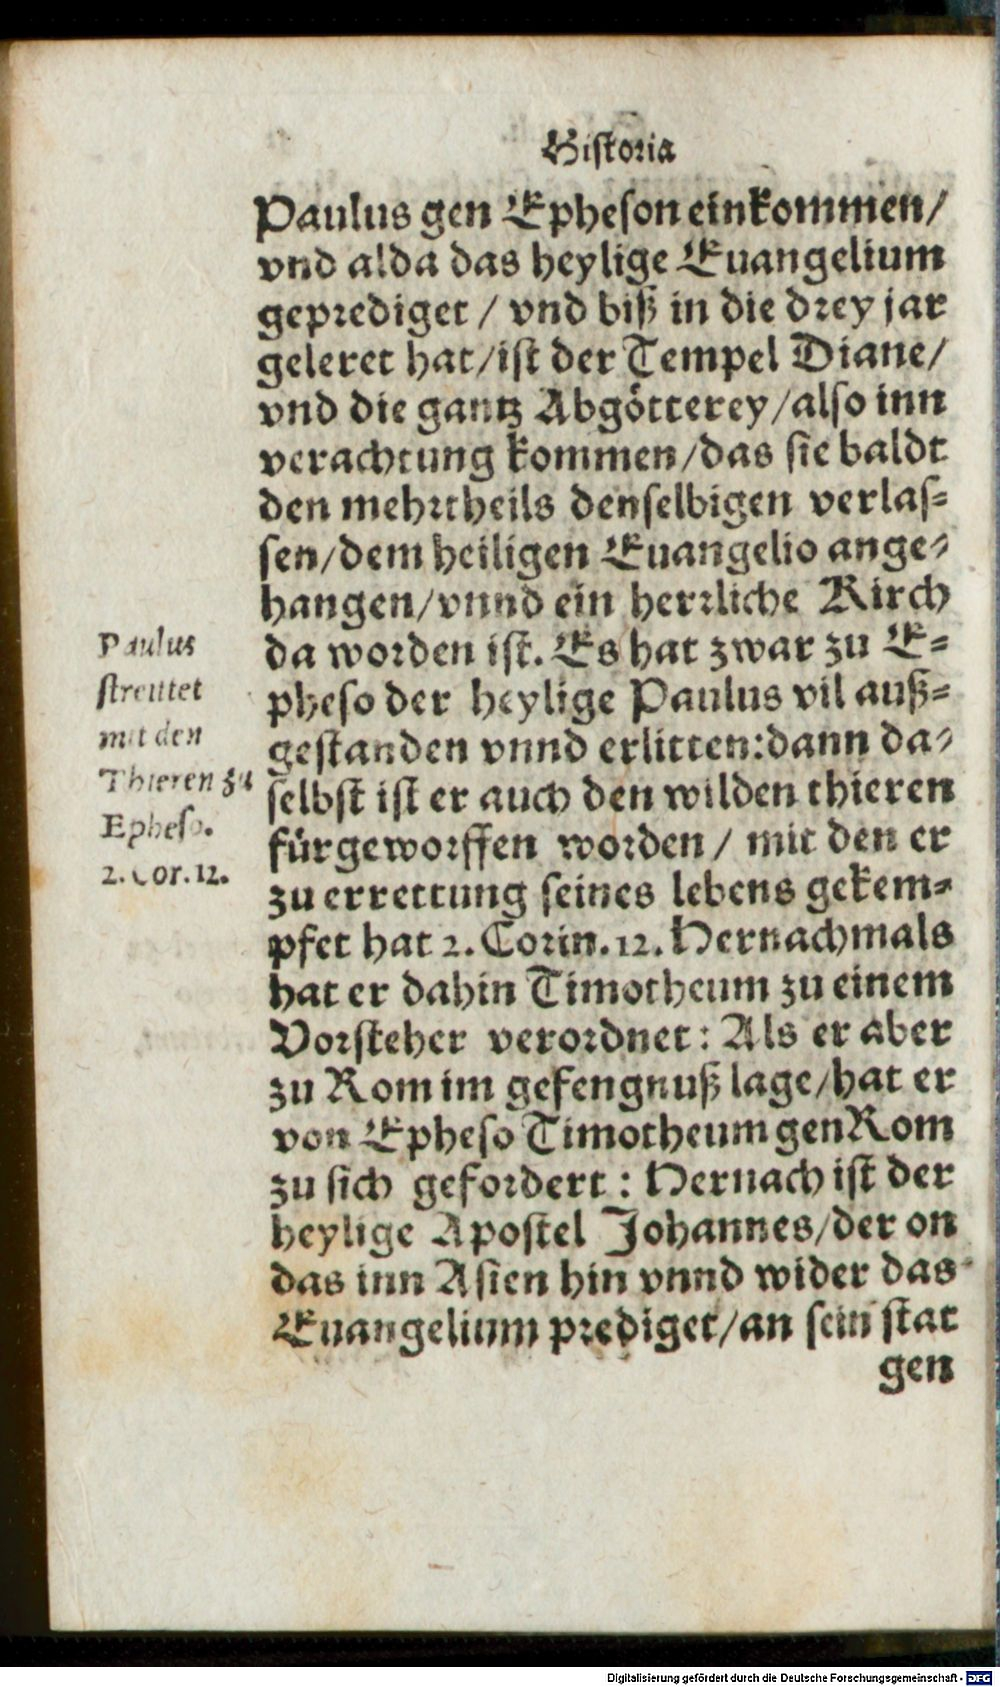 Historia
Paulus gen Epheson einkommen/
vnd alda das heylige Euangelium
geprediget / vnd biß in die drey jar
geleret hat/ist der Tempel Diane/
vnd die gantz Abgötterey/also inn
verachtung kommen/das sie baldt
den mehrtheils denselbigen verlas=
sen/dem heiligen Euangelio ange=
hangen/vnnd ein herrliche Kirch
da worden ist. Es hat zwar zu E=
pheso der heylige Paulus vil auß=
gestanden vnnd erlitten:dann da=
selbst ist er auch den wilden thieren
fürgeworffen worden / mit den er
zu errettung seines lebens gekem=
pfet hat 2. Corin. 12. Hernachmals
hat er dahin Timotheum zu einem
Vorsteher verordnet: Als er aber
zu Rom im gefengnuß lage/hat er
von Epheso Timotheum gen Rom
zu sich gefordert: Hernach ist der
heylige Apostel Johannes/der on
das inn Asien hin vnnd wider das
Euangelium prediget/an sein stat
gen
Paulus
streutet
mit den
Thieren zu
Epheso.
2. Cor. 12.
Digitalisierung gefördert durch die Deutsche Forschungsgemeinschaft - DFG